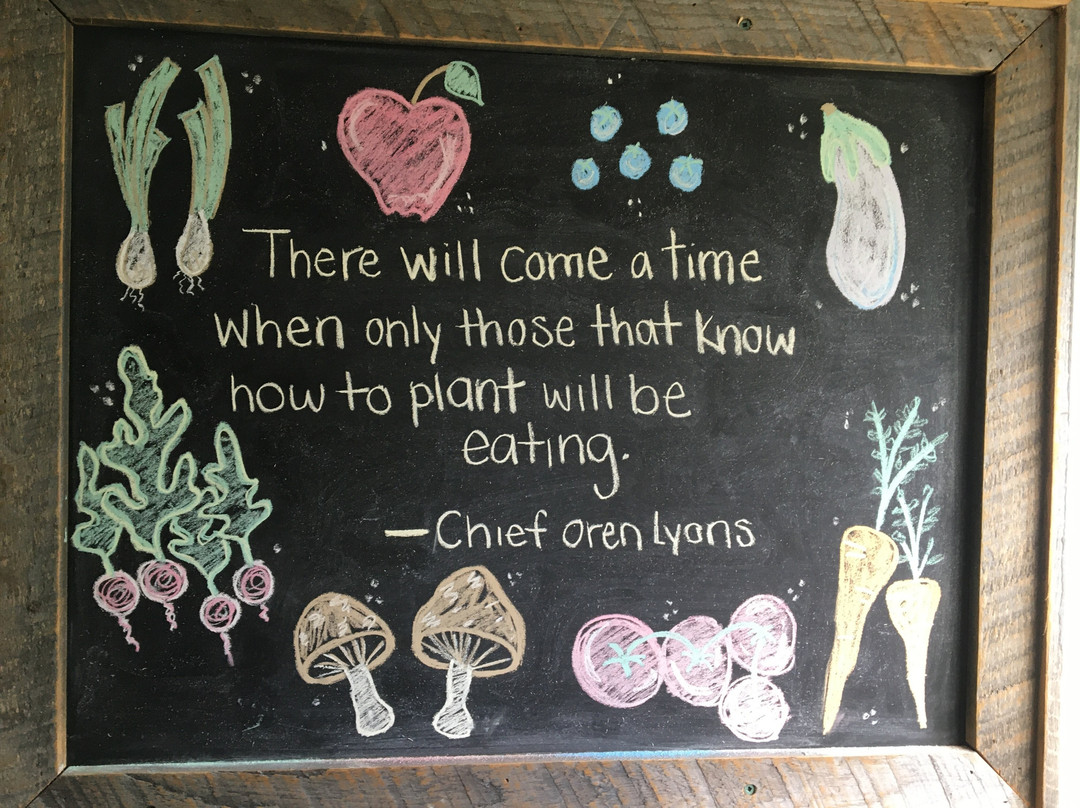 There will come a time
when only those that know
how to plant will be
eating.
—Chief Oren Lyons